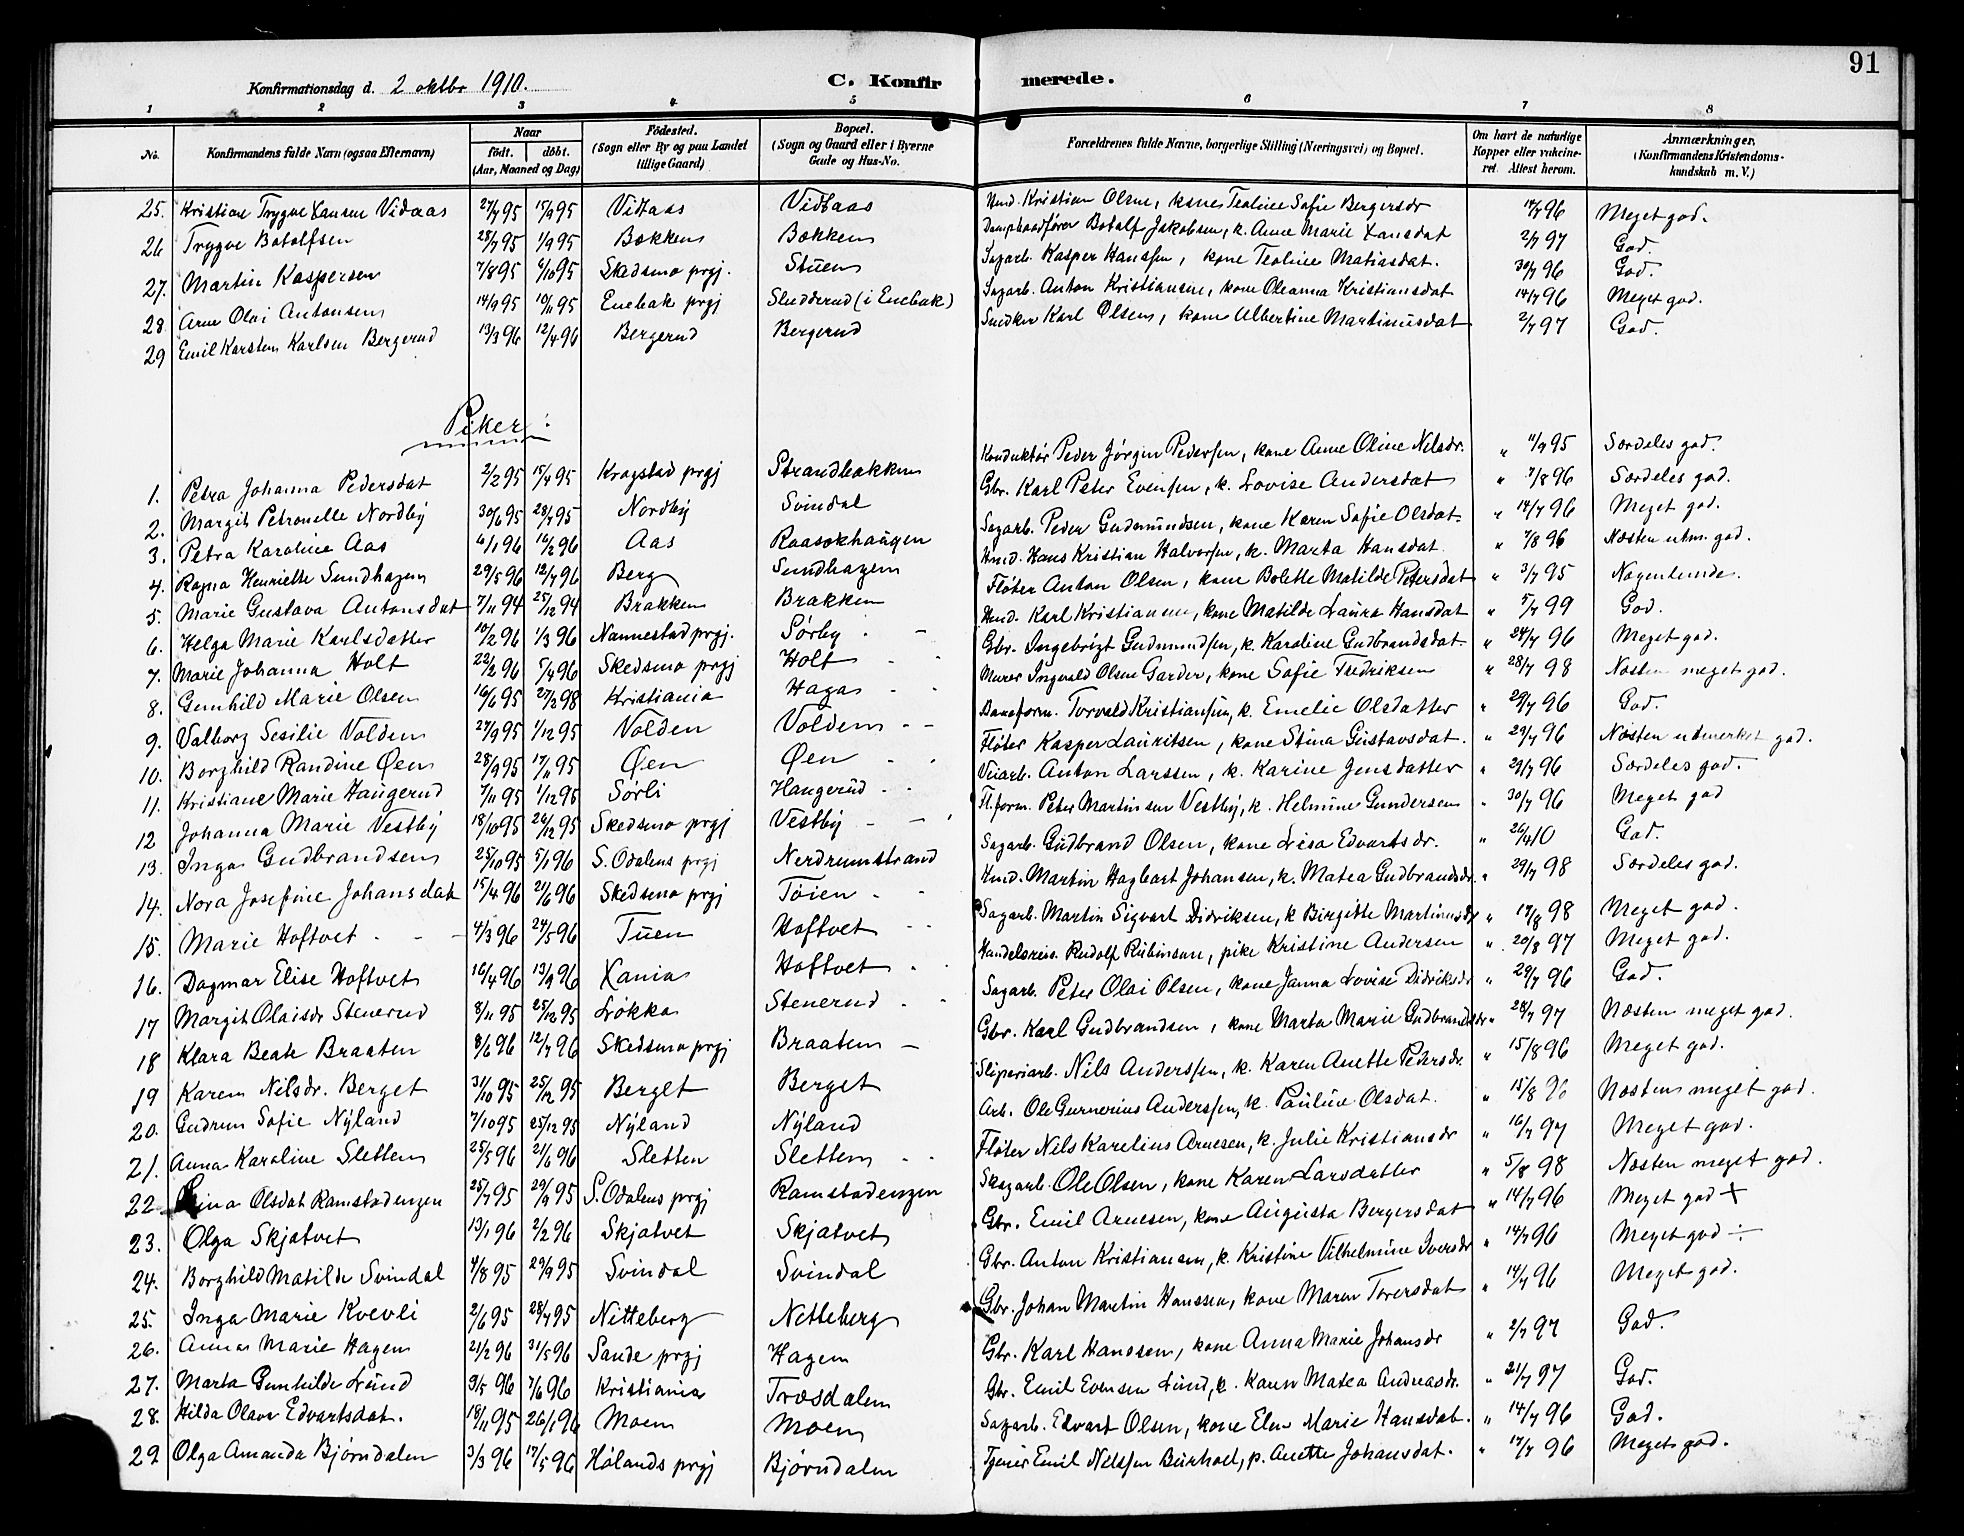 91
Konfirmationsdag d. 2 oktbr 1910. C. Konfirmerede.
1 2 3 4 5 6 7 8
No. Konfirmandens fulde Navn (ogsaa Efternavn) Naar födt. döbt. (Aar, Maaned og Dag) Födested. (Sogn eller By og paa Landet tillige Gaard) Bopæl. (Sogn og Gaard eller i Byerne Gade og Hus-No. Forældrenes fulde Navne, borgerlige Stilling (Næringsvei) og Bopæl. Om havt de naturlige Kopper eller vakcineret. Attest herom. Anmærkninger, (Konfirmandens Kristendomskundskab m. V.)
25. Kristian Trygve Hansen Vidaas 27/7 95 15/9 95 Vidaas Vidaas Hmd. Kristian Olsen, kone Teoline Sofie Bergersdr 17/7 96 Meget god.
26 Trygve Botolfsen 28/7 95 1/9 95 Bakken Bakken Dampbaadfører Botolf Jakobsen, k. Anne Marie Hansdat 2/7 97 God.
27. Martin Kaspersen 7/8 95 6/10 95 Skedsmo prgj. Stuen Sagarb. Kasper Hanssen, kone Teoline Matiasdat. 30/7 96 God.
28. Arne Olai Antonsen 14/9 95 10/11 95 Enebak prgj Sludderud (i Enebak) Sagarb. Anton Kristiansen, kone Oleanna Kristiansdat 14/7 96 Meget god.
29 Emil Karsten Karlsen Bergerud 13/3 96 12/4 96 Bergerud Bergerud Snedker Karl Olsen, kone Albertine Martinusdat 2/7 97 God.
Piker:
1. Petra Johanna Pedersdat 2/2 95 15/4 95 Kragstad prgj Strandbakken Konduktör Peder Jörgen Pedersen, kone Anne Oline Nilsdr. " 11/9 95 Særdeles god.
2. Margit Petronelle Nordby 30/6 95 28/7 95 Nordby Svindal Gbr. Karl Peter Evensen, k. Lovise Andersdat " 7/8 96 Særdeles god.
3. Petra Karoline Aas 6/1 96 16/2 96 Aas Raasokhaugen Sagarb. Peder Gudmundsen, kone Karen Sofie Olsdat. " 14/7 96 Meget god.
4. Ragna Henriette Sundhagen 29/5 96 12/7 96 Berg Sundhagen Hmd. Hans Kristian Halvorsen, k. Marta Hansdat. " 7/8 96 Næsten utm. god.
5. Marie Gustava Antonsdat 7/11 94 25/12 94 Brakken Brakken Fløter Anton Olsen, kone Bolette Matilde Petersdat " 3/7 95 Nogenlunde.
6. Helga Marie Karlsdatter 10/2 96 1/3 96 Nannestad prgj. Sørby Hmd. Karl Kristiansen, kone Matilde Laura Hansdat " 5/7 99 God.
7. Marie Johanna Holt 22/2 96 5/4 96 Skedsmo prgj Holt Gbr. Ingebrigt Gudmundsen, k. Karoline Gudbrandsdat. " 24/7 96 Meget god.
8. Gunhild Marie Olsen 16/6 95 27/2 98 Kristiania Haga Murer Ingvald Olsen Garder, kone Sofie Fredriksen " 28/7 98 Næsten meget god.
9. Valborg Sesilie Volden 27/9 95 1/12 95 Volden Volden Baneform. Torvald Kristiansen, k. Emelie Olsdatter " 29/7 96 God.
10. Borghild Randine Øen 28/9 95 17/11 95 Øen Øen Fløter Kasper Lauritsen, kone Stina Gustavsdat. " 29/7 96 Næsten utmerket god.
11. Kristiane Marie Haugerud 7/11 95 1/12 95 Sörli Haugerud Veiarb. Anton Larssen, k. Karine Jensdatter " 29/7 96 Særdeles god.
12 Johanna Marie Vestby 18/10 95 26/12 95 Skedsmo prgj Vestby Fl.form. Peter Martinsen Vestby, k. Helmine Gundersen " 30/7 96 Meget god
13. Inga Gudbrandsen 25/10 95 5/1 96 S. Odalens prgj Nerdrumstrand Sagarb. Gudbrand Olsen, kone Lisa Edvartsdr. " 26/4 10 God.
14. Nora Josefine Johansdat 15/4 96 21/6 96 Skedsmo prgj Töien Hmd. Martin Hagbart Johansen, k. Matea Gudbrandsdr. " 29/7 98 Særdeles god.
15. Marie Hoftvet 4/3 96 24/5 96 Tuen Hoftvet Sagarb. Martin Sigvart Didriksen, k Birgitte Martinusdr " 17/8 98 Meget god.
16. Dagmar Elise Hoftvet 16/4 96 13/9 96 Xania Hoftvet Handelsreis. Rudolf Rubinson, pike Kristine Andersen " 20/8 97 Meget god.
17 Margit Olaisdr Stenerud 8/11 95 25/12 95 Løkka Stenerud Sagarb. Peter Olai Olsen, kone Janna Lovise Didriksdr " 29/7 96 God.
18 Klara Beate Braaten 8/6 96 12/7 96 Skedsmo prgj Braaten Gbr. Karl Gudbrandsen, kone Marta Marie Gudbrandsdr " 28/7 97 Næsten meget god.
19 Karen Nilsdr. Berget 31/10 95 25/12 95 Berget Berget Sliperiarb. Nils Anderssen, k. Karen Anette Pedersdr. " 15/8 96 Meget god.
20. Gudrun Sofie Nyland 7/10 95 25/12 95 Nyland Nyland Arb. Ole Gunerius Anderssen, k. Pauline Olsdat. " 15/8 96 Næsten meget god.
21. Anna Karoline Sletten 25/5 96 21/6 96 Sletten Sletten Fløter Nils Karelius Arnesen, k. Julie Kristiansdr " 16/7 97 Meget god.
22 Olsdat Ramstadengen 25/7 95 29/9 95 S. Odalens prgj Ramstadengen Skogarb. Ole Olsen, kone Karen Larsdatter " 5/8 98 Næsten meget god.
23. Olga Skjatvet 13/1 96 2/2 96 Skjatvet Skjatvet Gbr. Emil Arnesen, kone Augusta Bergersdat " 14/7 96 Meget god +
24. Borghild Matilde Svindal 4/8 95 29/9 95 Svindal Svindal Gbr. Anton Kristiansen, k. Kristine Vilhelmine Iversdr " 14/7 96 Meget god ÷
25. Inga Marie Kvevli 2/6 95 28/7 95 Nitteberg Netteberg Gbr. Johan Martin Hanssen, kone Maren Toversdat " 14/7 96 Meget god.
26. Anna Marie Hagen 21/2 96 31/5 96 Sande prgj Hagen Gbr. Karl Hanssen, kone Anna Marie Johansdr " 2/7 97 God.
27. Marta Gunhilde Lund 3/5 96 7/6 96 Kristiania Træsdalen Gbr. Emil Evensen Lund, k. Karen Matea Andreasdr. " 21/7 97 God.
28. Hilda Olava Edvartsdat. 18/11 95 26/1 96 Moen Moen Sagarb. Edvart Olsen, kone Elen Marie Hansdat. " 14/7 96 God.
29 Olga Amanda Bjørndalen 3/3 96 17/5 96 Hølands prgj Bjørndalen Tjener Emil Nilssen Burhoel, p. Anette Johansdat. " 17/7 96 Meget god.